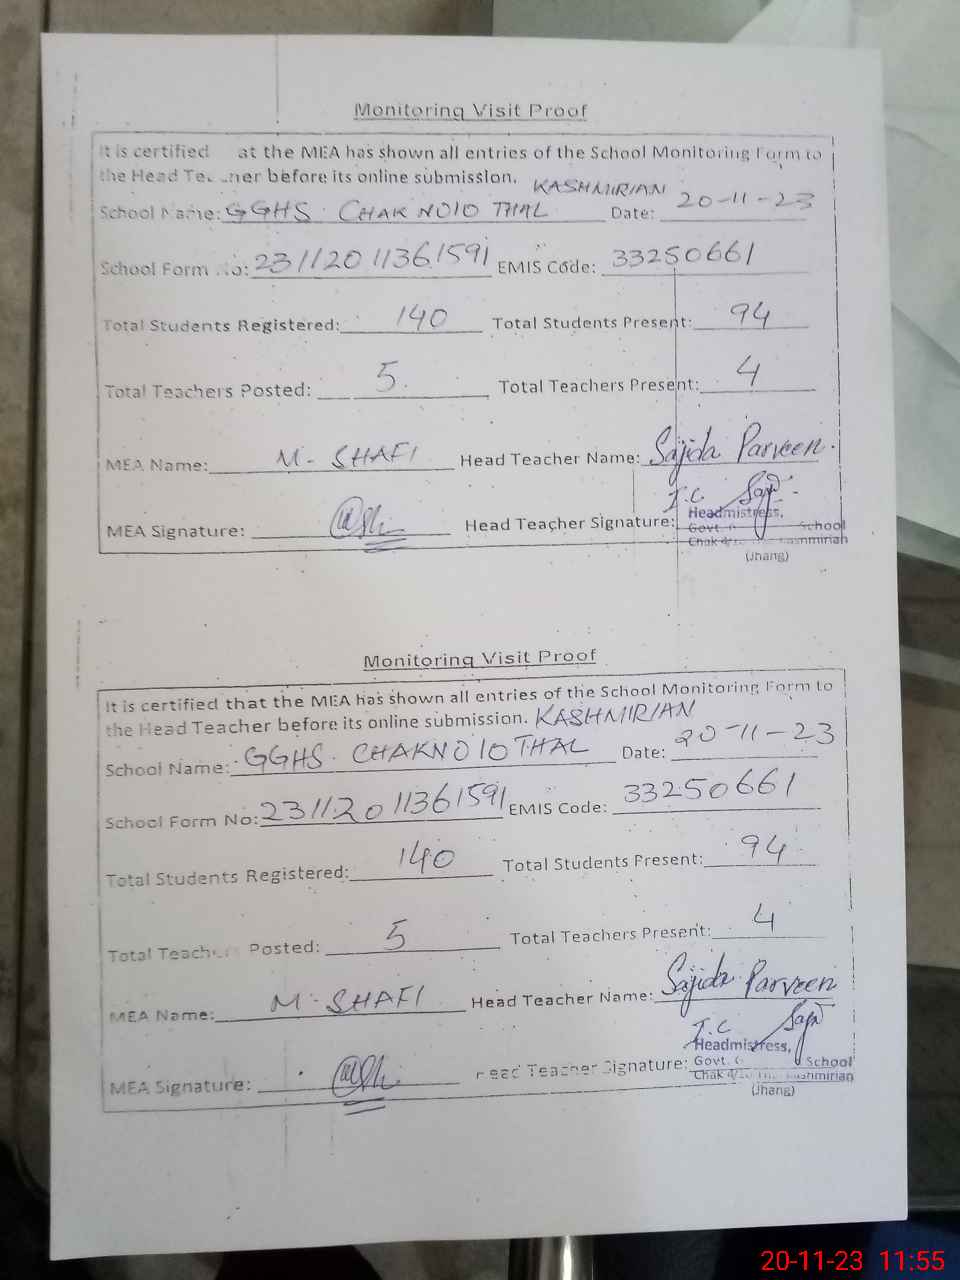 Monitoring Visit Proof
It is certified at the MEA has shown all entries of the School Monitoring Form to
the Head Teacher before its online submission. KASHMIRIAN
School Name: GGHS. CHAK NO10 THAL Date: 20-11-23
School Form No: 23112011361591 EMIS Code: 33250661
Total Students Registered: 140 Total Students Present: 94
Total Teachers Posted: 5 Total Teachers Present: 4
MEA Name: M- SHAFI Head Teacher Name: Sajida Parveen.
MEA Signature: Head Teacher Signature: I.C
Headmistress,
Govt. School
Chak Kashmirian
(Jhang)
Monitoring Visit Proof
It is certified that the MEA has shown all entries of the School Monitoring Form to
the Head Teacher before its online submission. KASHMIRIAN
School Name: GGHS. CHAKNO10 THAL Date: 20-11-23
School Form No: 23112011361591 EMIS Code: 33250661
Total Students Registered: 140 Total Students Present: 94
Total Teachers Posted: 5 Total Teachers Present: 4
MEA Name: M-SHAFI Head Teacher Name: Sajida Parveen
MEA Signature: Head Teacher Signature: I.C
Headmistress,
Govt. School
Chak Kashmirian
(Jhang)
20-11-23 11:55